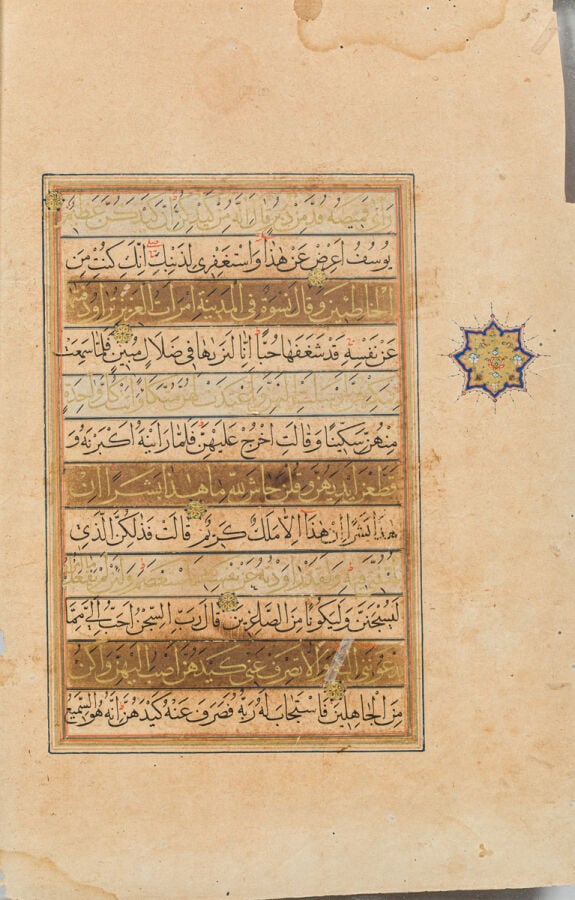 رَأى قَمِيصَهُ قُدَّ مِنْ دُبُرٍ قَالَ اِنَّهُ مِنْ كَيْدِكُنَّ اِنَّ كَيْدَكُنَّ عَظِيمٌ
يُوسُفُ اَعْرِضْ عَنْ هٰذَا وَاسْتَغْفِرِي لِذَنْبِكِ اِنَّكِ كُنْتِ مِنَ
الْخَاطِئِينَ وَقَالَ نِسْوَةٌ فِي الْمَدِينَةِ امْرَاَتُ الْعَزِيزِ تُرَاوِدُ فَتٰيهَا
عَنْ نَفْسِهِ قَدْ شَغَفَهَا حُبًّا اِنَّا لَنَرٰيهَا فِي ضَلَالٍ مُبِينٍ فَلَمَّا سَمِعَتْ
اَرْسَلَتْ اِلَيْهِنَّ وَاَعْتَدَتْ لَهُنَّ مُتَّكَاً كُلَّ وَاحِدَةٍ
مِنْهُنَّ سِكِّينًا وَقَالَتِ اخْرُجْ عَلَيْهِنَّ فَلَمَّا رَاَيْنَهُ اَكْبَرْنَهُ وَ
قَطَّعْنَ اَيْدِيَهُنَّ وَقُلْنَ حَاشَ لِلّٰهِ مَا هٰذَا بَشَرًا اِنْ
هٰذَا بَشَرًا اِنْ هٰذَا اِلَّا مَلَكٌ كَرِيمٌ قَالَتْ فَذٰلِكُنَّ الَّذِي
فِيهِ وَلَقَدْ رَاوَدْتُهُ عَنْ نَفْسِهِ فَاسْتَعْصَمَ وَلَئِنْ لَمْ يَفْعَلْ
لَيُسْجَنَنَّ وَلَيَكُونًا مِنَ الصَّاغِرِينَ قَالَ رَبِّ السِّجْنُ اَحَبُّ اِلَيَّ مِمَّا
يَدْعُونَنِي اِلَيْهِ وَاِلَّا تَصْرِفْ عَنِّي كَيْدَهُنَّ اَصْبُ اِلَيْهِنَّ وَاَكُنْ
مِنَ الْجَاهِلِينَ فَاسْتَجَابَ لَهُ رَبُّهُ فَصَرَفَ عَنْهُ كَيْدَهُنَّ اِنَّهُ هُوَ السَّمِيعُ